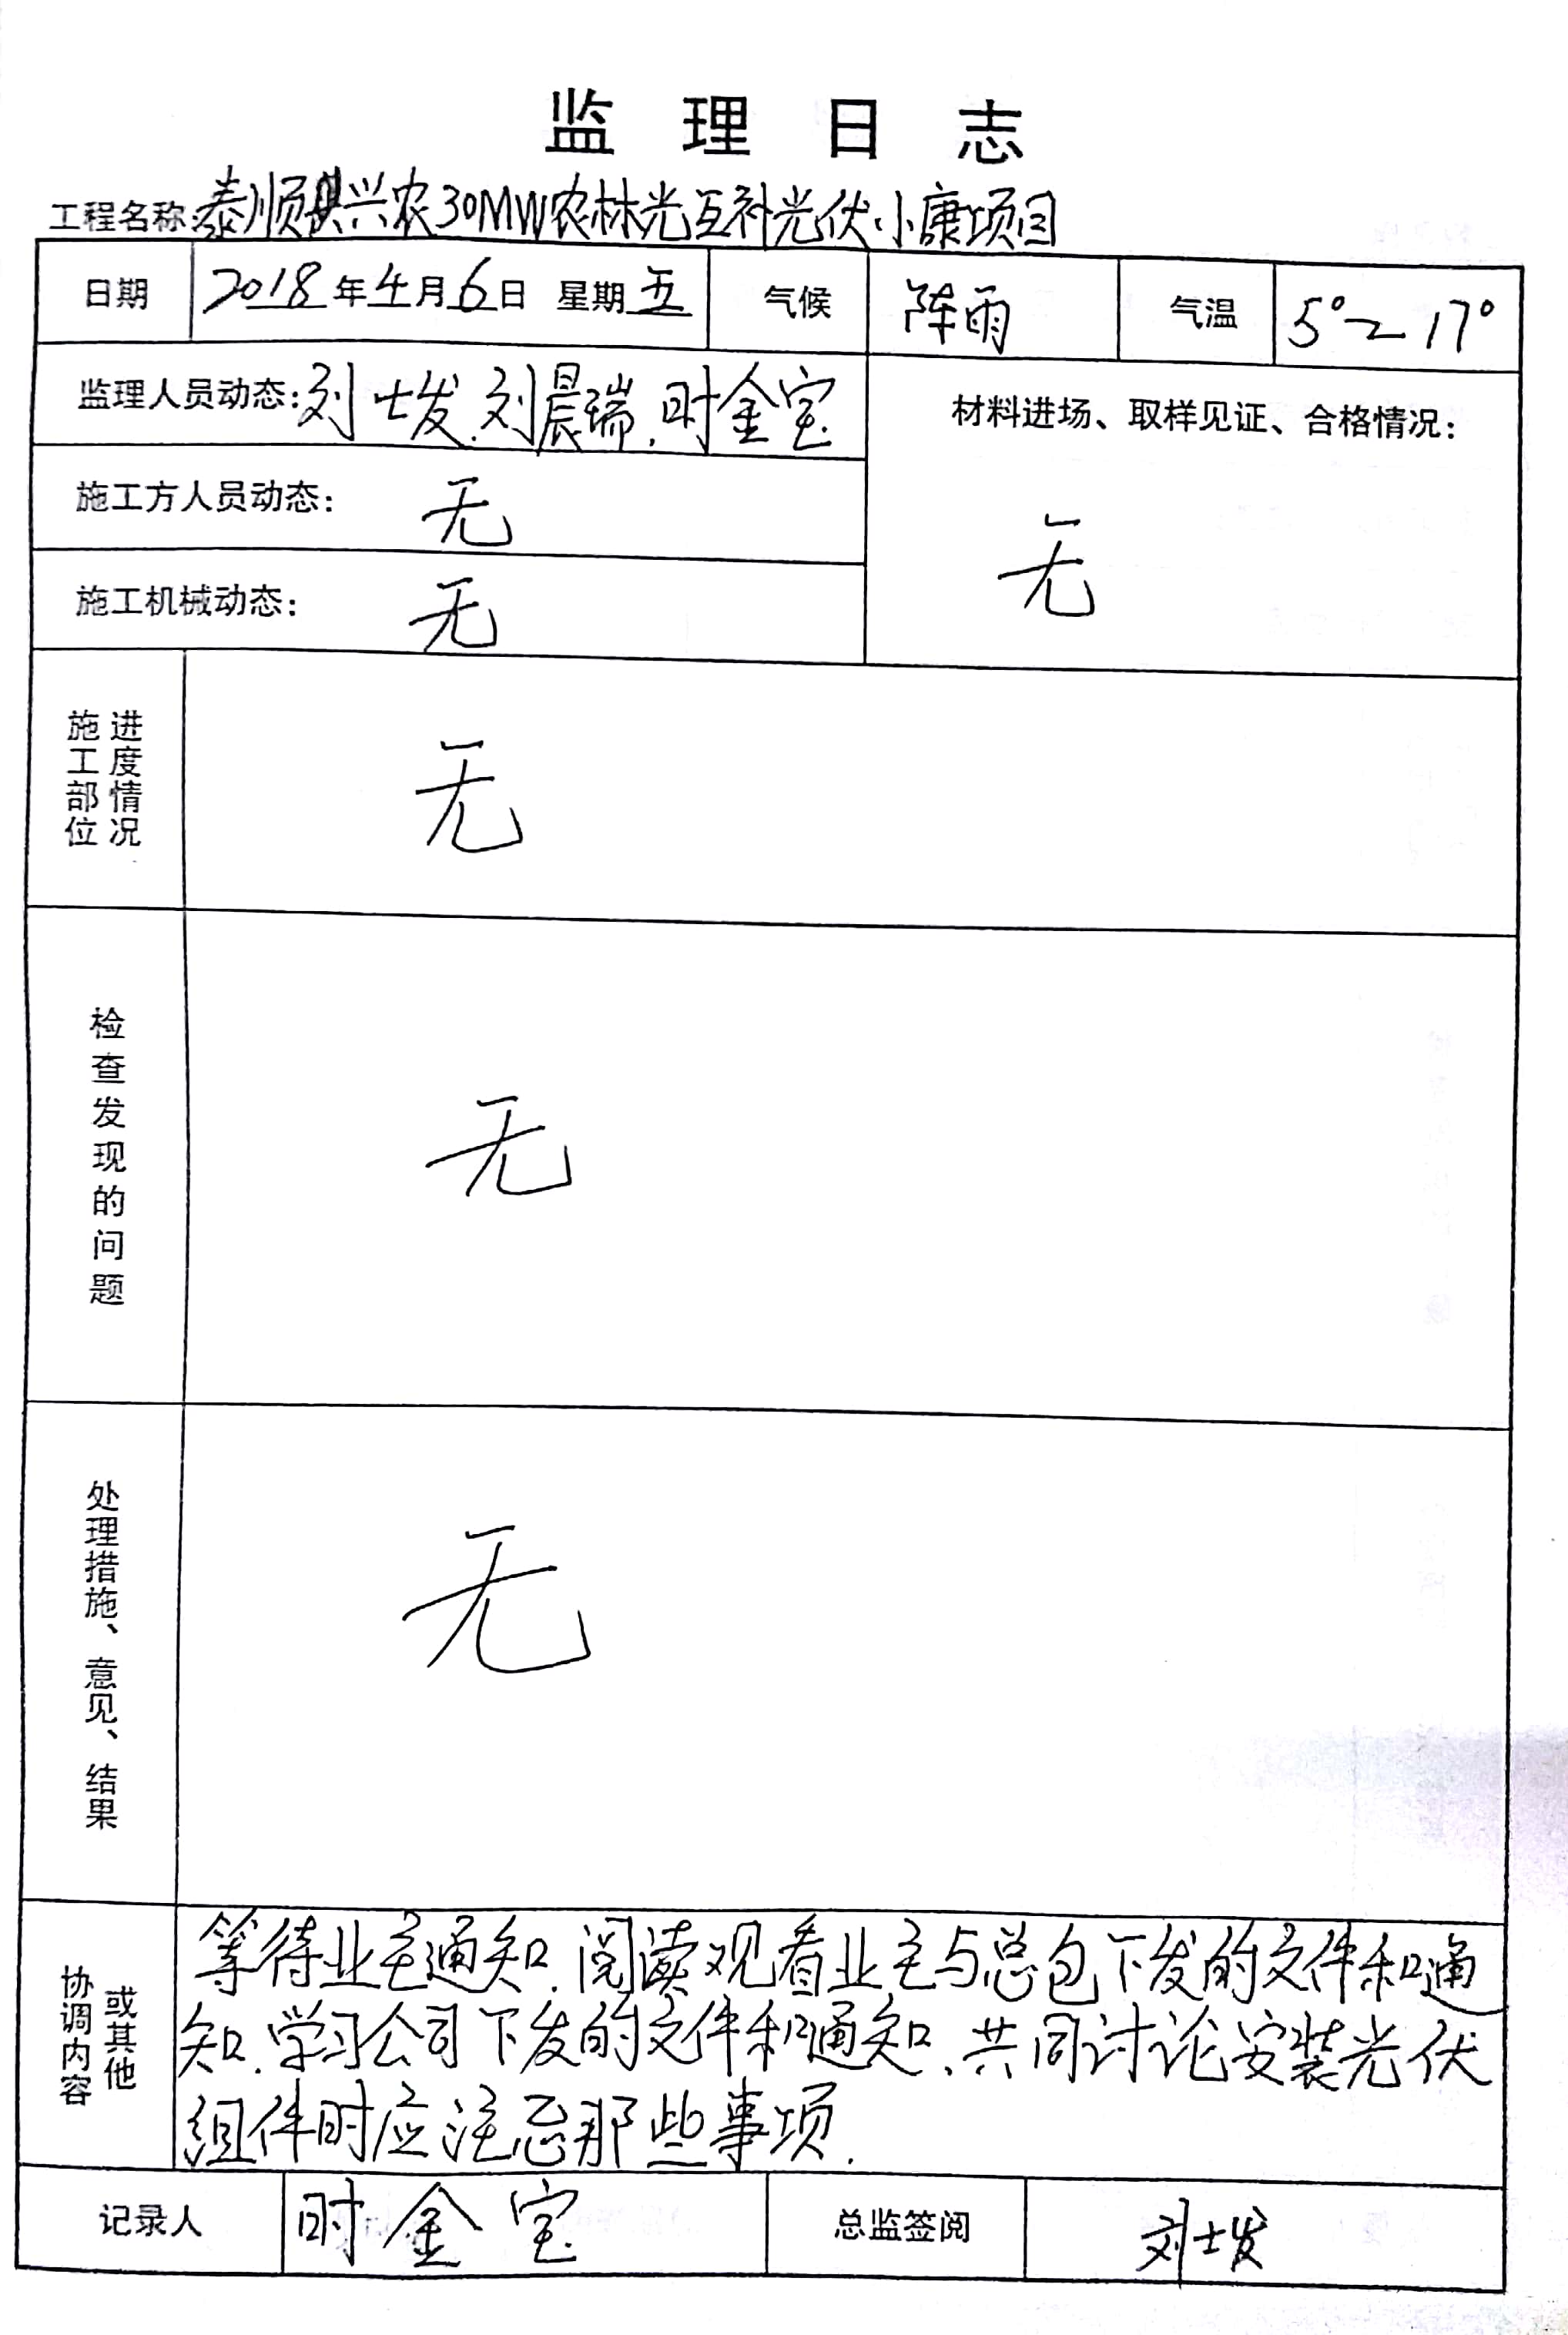 监理日志
工程名称:泰顺兴农30MW农林光互补光伏小康项目
日期 2018年4月6日 星期五 气候 阵雨 气温 5°~17°
监理人员动态:刘士发.刘晨瑞.时金宝
材料进场、取样见证、合格情况:
施工方人员动态: 无
无
施工机械动态: 无
施工部位
进度情况
无
检查发现的问题
无
处理措施、意见、结果
无
协调内容
或其他
等待业主通知.阅读观看业主与总包下发的文件和通
知.学习公司下发的文件和通知.共同讨论安装光伏
组件时应注意那些事项.
记录人 时金宝 总监签阅 刘士发